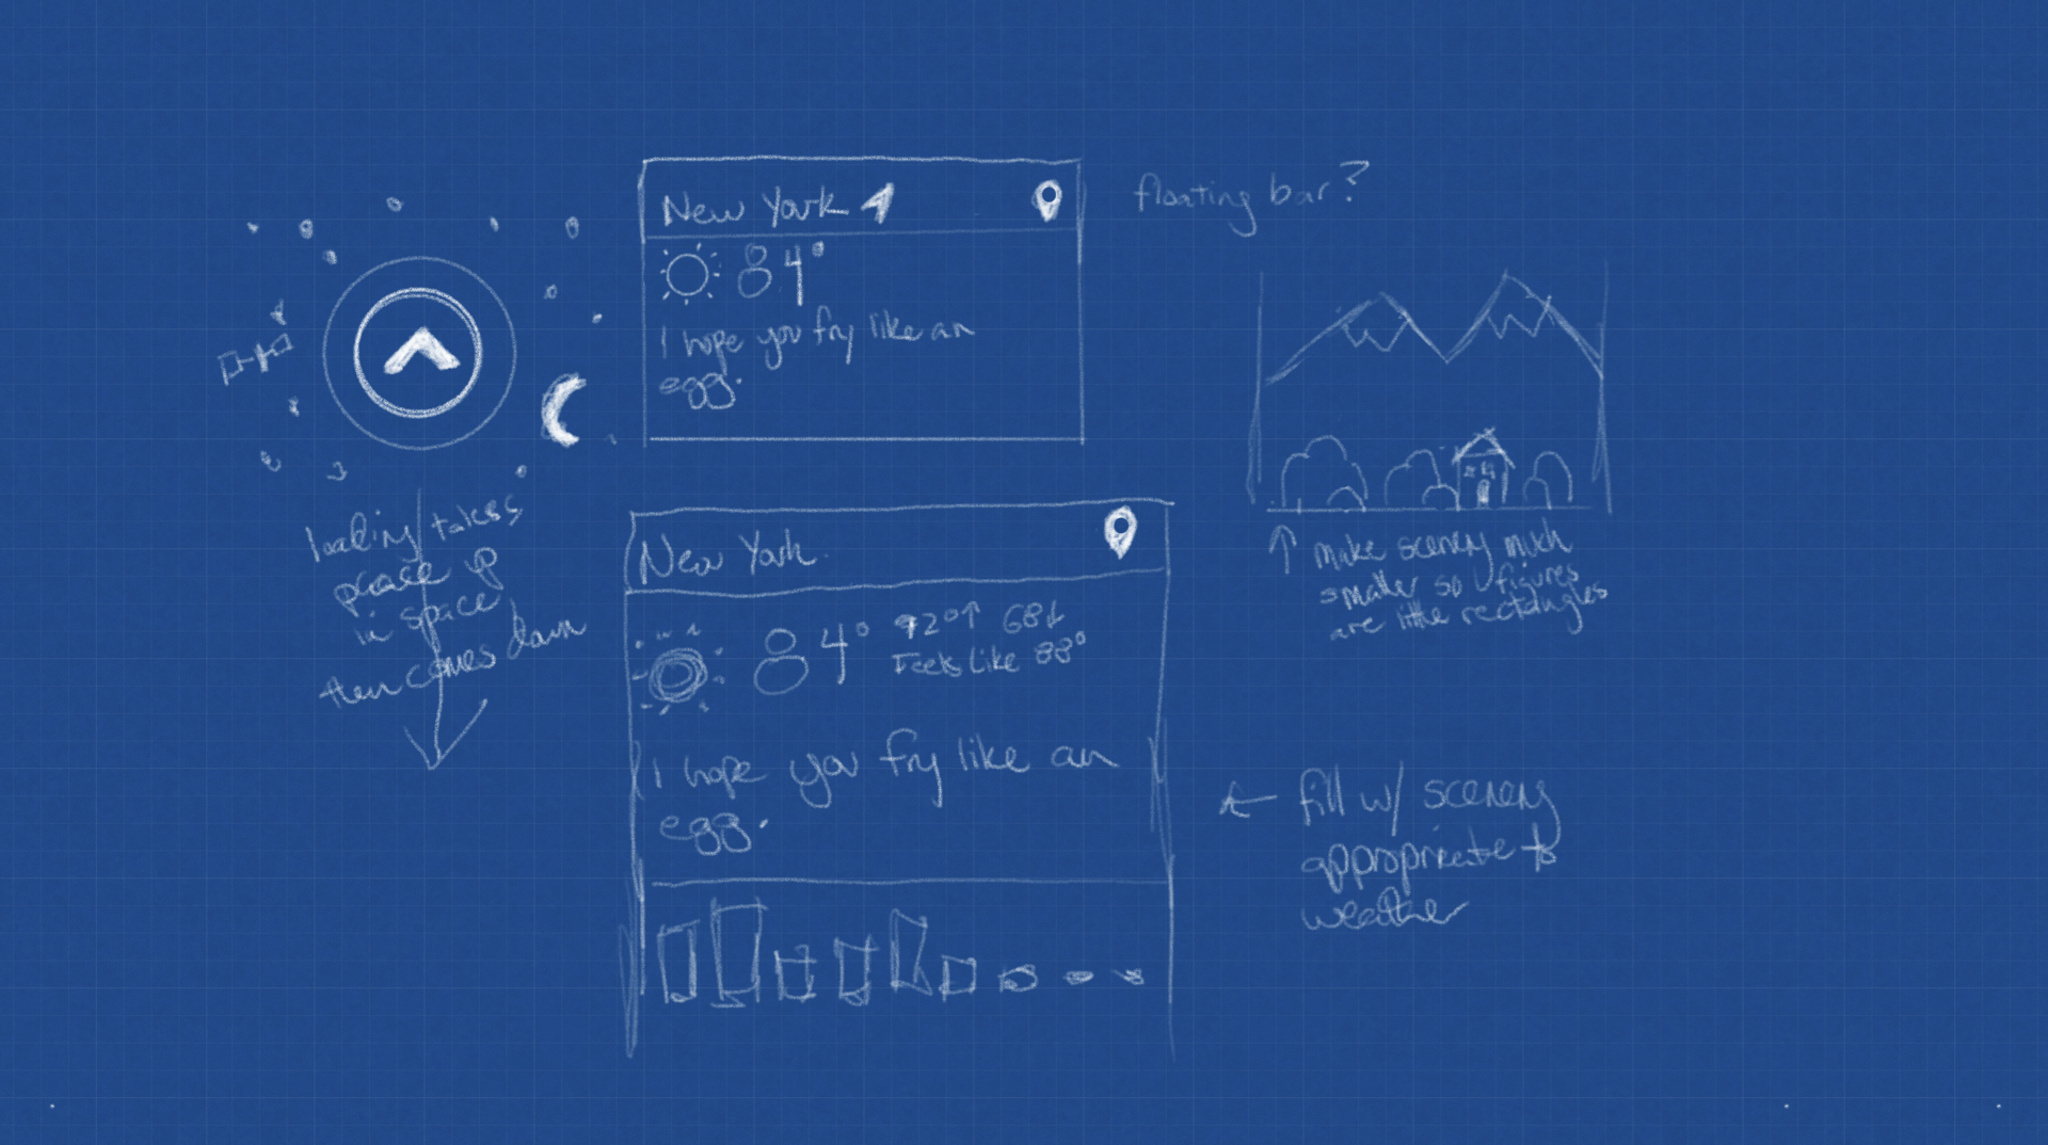 New York
84°
I hope you fry like an
egg.
floating bar?
loading takes
place up
in space
then comes down
New York
84° 92°↑ 68↓
Feels Like 88°
I hope you fry like an
egg.
↑ make scenery much
smaller so figures
are little rectangles
← fill w/ scenery
appropriate to
weather